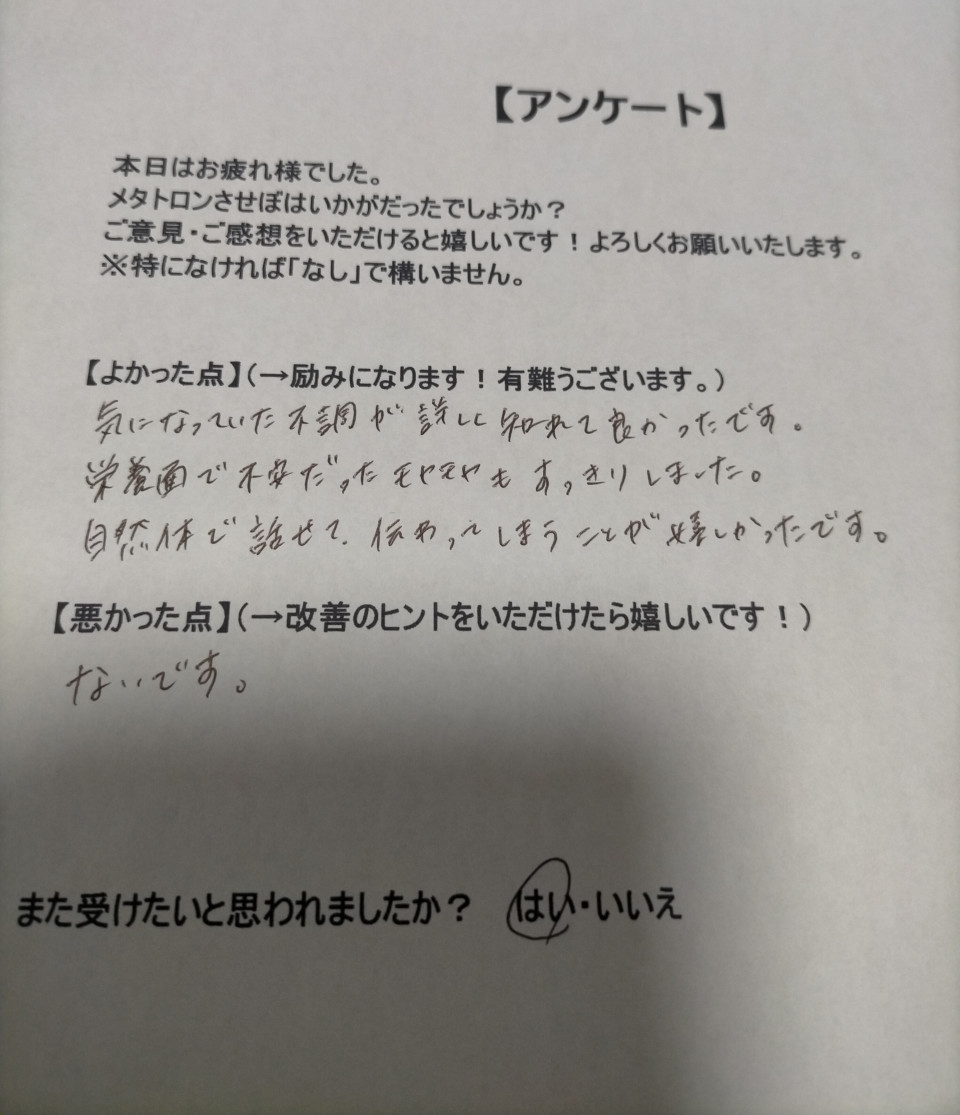 【アンケート】
本日はお疲れ様でした。
メタトロンさせぼはいかがだったでしょうか？
ご意見・ご感想をいただけると嬉しいです！よろしくお願いいたします。
※特になければ「なし」で構いません。
【よかった点】（→励みになります！有難うございます。）
気になっていた不調が詳しく知れて良かったです。
栄養面で不安だったモヤモヤもすっきりしました。
自然体で話せて、伝わってしまうことが嬉しかったです。
【悪かった点】（→改善のヒントをいただけたら嬉しいです！）
ないです。
また受けたいと思われましたか？ はい・いいえ